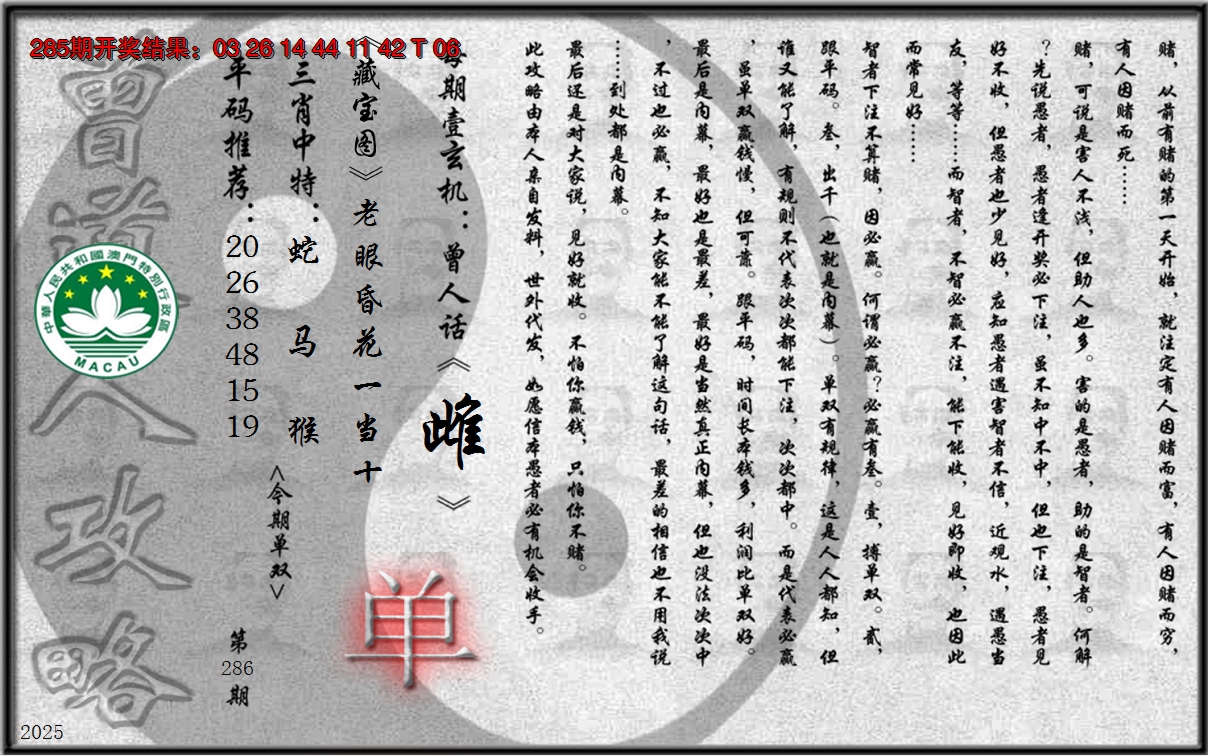 285期开奖结果：03 26 14 44 11 42 T 06
赌，从前有赌的第一天开始，就注定有人因赌而富，有人因赌而穷，
有人因赌而死……
赌，可说是害人不浅，但助人也多。害的是愚者，助的是智者。何解
？先说愚者，愚者逢开奖必下注，虽不知中不中，但也下注，愚者见
好不收，但愚者也少见好，应知愚者遇害智者不信，近观水，遇愚当
友，等等……而智者，不智必赢不注，能下能收，见好即收，也因此
而常见好……
智者下注不算赌，因必赢。何谓必赢？必赢有叁。壹，搏单双。贰，
跟平码。叁，出千（也就是内幕）。单双有规律，这是人人都知，但
谁又能了解，有规则不代表次次都能下注，次次都中。而是代表必赢
，虽单双赢钱慢，但可靠。跟平码，时间长本钱多，利润比单双好。
最后是内幕，最好也是最差，最好是当然真正内幕，但也没法次次中
，不过也必赢，不知大家能不能了解这句话，最差的相信也不用我说
……到处都是内幕。
最后还是对大家说，见好就收。不怕你赢钱，只怕你不赌。
此攻略由本人亲自发料，世外代发，如愿信本愚者必有机会收手。
每期壹玄机：曾人话《雌》
《藏宝图》老眼昏花一当十
单
三肖中特：蛇 马 猴
<今期单双>
平码推荐：20 26 38 48 15 19
第286期
曾道人攻略
中華人民共和國澳門特別行政區
MACAU
2025